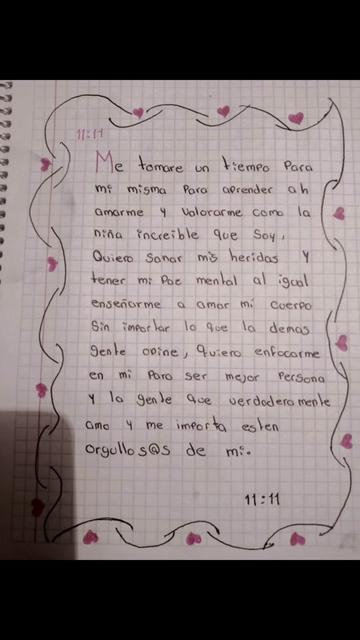 11:11
Me tomare un tiempo para
mi misma para aprender ah
amarme y valorarme como la
niña increible que soy,
Quiero sanar mis heridas y
tener mi Paz mental al igual
enseñarme a amar mi cuerpo
Sin importar lo que la demas
gente opine, quiero enfocarme
en mi para ser mejor persona
y la gente que verdaderamente
amo y me importa esten
orgullos@s de mi.
11:11